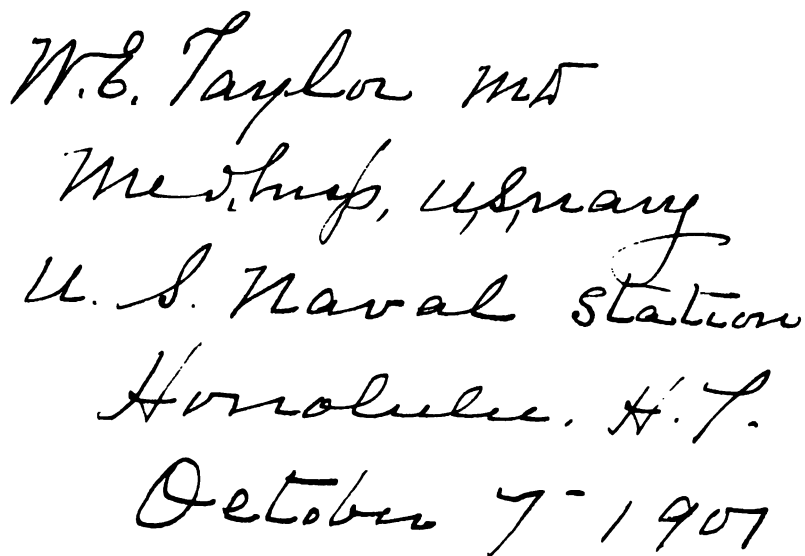 W.E. Taylor MD
Med. Insp, U,S, navy
U. S. Naval Station
Honolulu. H.T.
October 7 - 1901